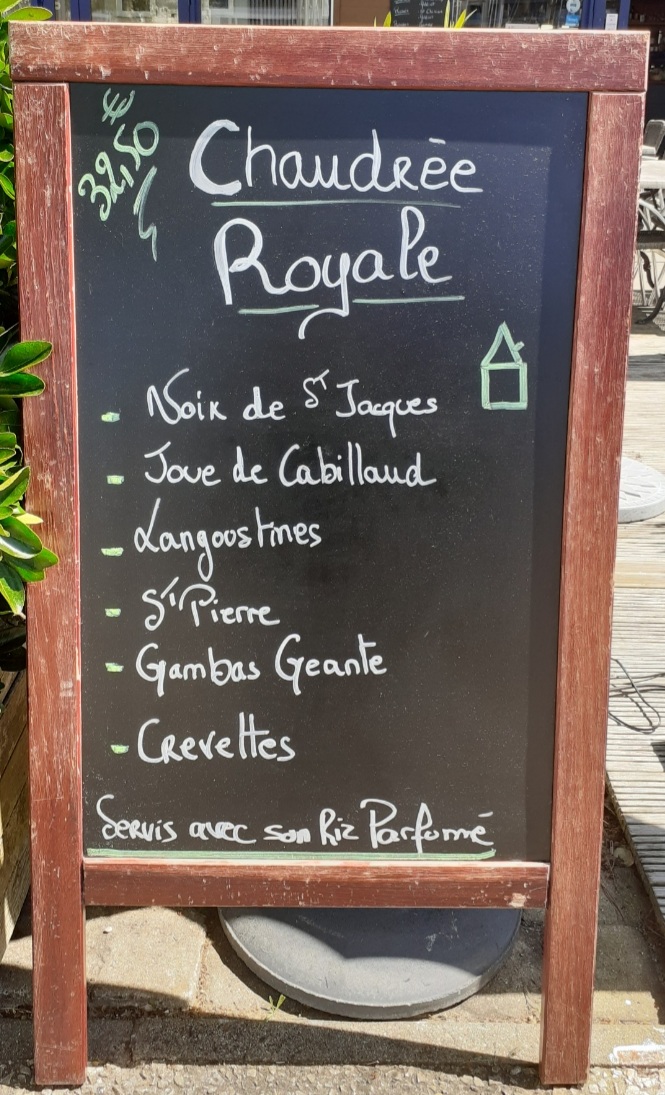 €
32,50
Chaudrée
Royale
- Noix de St Jacques
- Joue de Cabillaud
- Langoustines
- St Pierre
- Gambas Geante
- Crevettes
Servis avec son Riz Parfumé